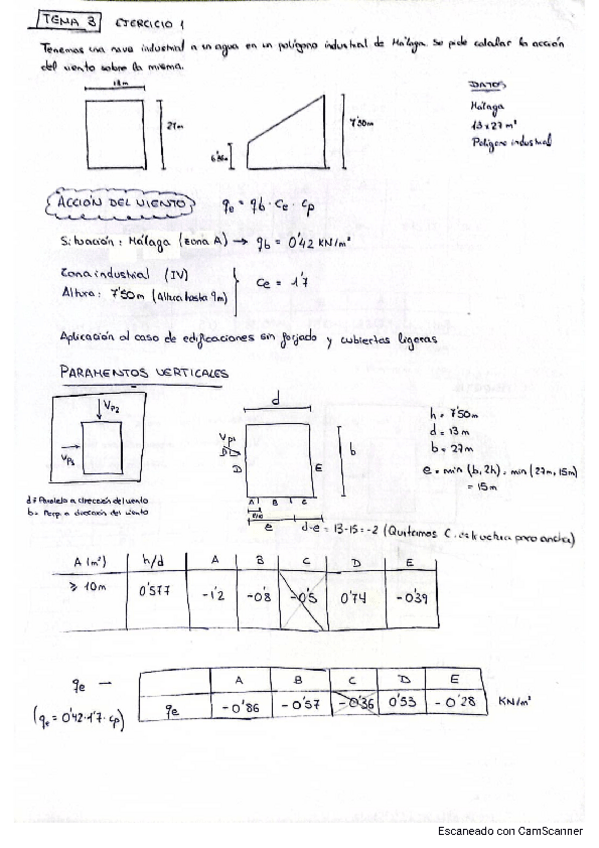 TEMA 3 EJERCICIO 1
Tenemos una nave industrial a un agua en un polígono industrial de Málaga. Se pide calcular la acción
del viento sobre la misma.
27m
7'50m
DATOS
Málaga
13x27 m²
Polígono industrial
ACCIÓN DEL VIENTO qe = qb · ce · cp
Situación: Málaga (zona A) → qb = 0'42 KN/m²
Zona industrial (IV)
Altura: 7'50m (Altura hasta 9m)
Ce = 1'7
Aplicación al caso de edificaciones sin forjado y cubiertas ligeras
PARAMENTOS VERTICALES
VP2
VP1
d = Paralela a dirección del viento
b = Perp. a dirección del viento
d
VP1
D E b
A B C
e d-e = 13-15 = -2 (Quitamos C. estructura poco ancha)
h = 7'50m
d = 13m
b = 27m
e = min (b, 2h) = min (27m, 15m)
= 15m
A (m²) h/d A B C D E
≥ 10m 0'577 -1'2 -0'8 -0'5 0'74 -0'39
qe —
(qe = 0'42·1'7·cp)
A B C D E
qe -0'86 -0'57 -0'36 0'53 -0'28 KN/m²
Escaneado con CamScanner